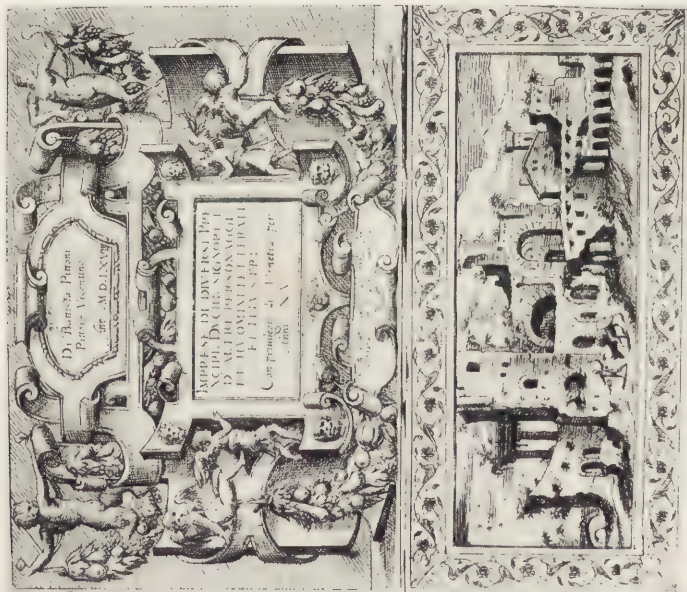 IMPRESE DI DIVERSI PRI
NCIPI, DVCHI, SIGNORI, E
D'ALTRI PERSONAGGI
ET HVOMINI LETTERATI
ET ILLVSTRI
Con privilegio di Venetia per
anni XV
Di Battista Pittoni
Pittore Vicentino